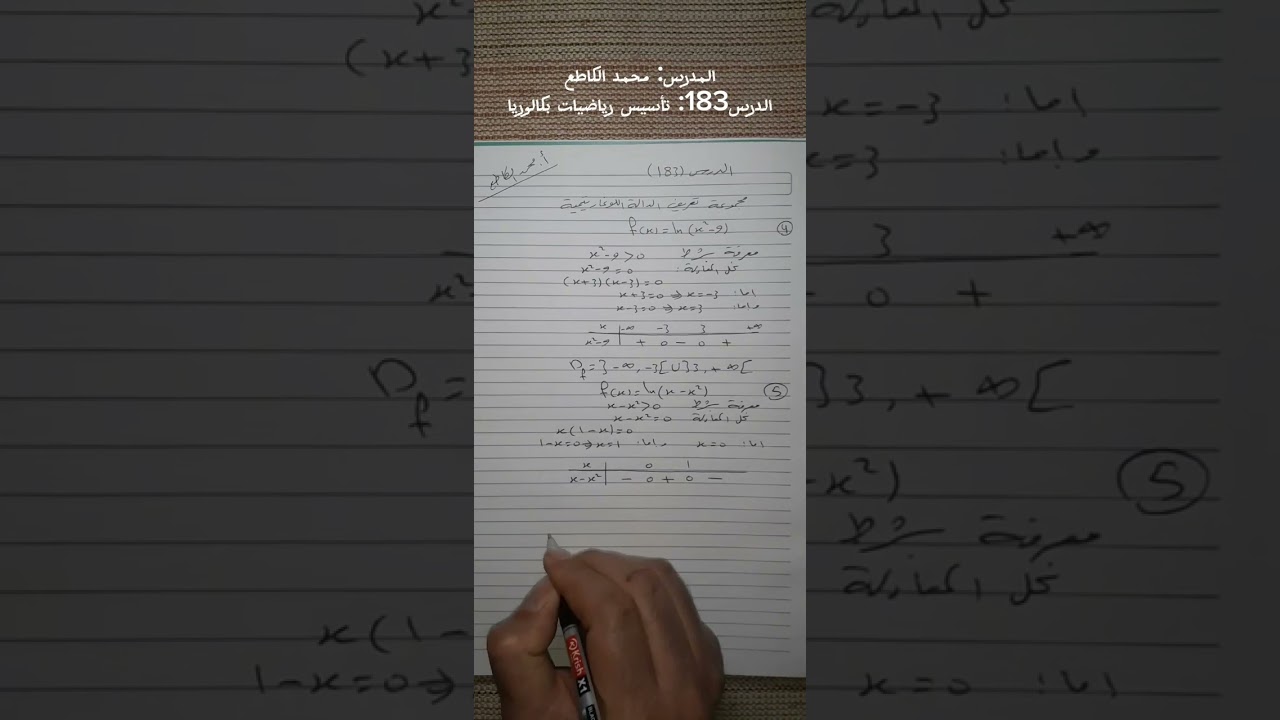 المدرس: محمد الكاطع
الدرس183: تأسيس رياضيات بكالوريا
أ. محمد الكاطع
الدرس (183)
مجموعة تعريف الدالة اللوغاريتمية
④ f(x)=ln(x²-9)
معرفة شرط x²-9>0
نحل المعادلة: x²-9=0
(x+3)(x-3)=0
اما: x+3=0⇒x=-3
واما: x-3=0⇒x=3
x | -∞ -3 3 +∞
x²-9 | + 0 - 0 +
D_f=]-∞,-3[∪]3,+∞[
⑤ f(x)=ln(x-x²)
معرفة شرط x-x²>0
نحل المعادلة x-x²=0
x(1-x)=0
اما: x=0 واما: 1-x=0⇒x=1
x | 0 1
x-x² | - 0 + 0 -
Krish X1